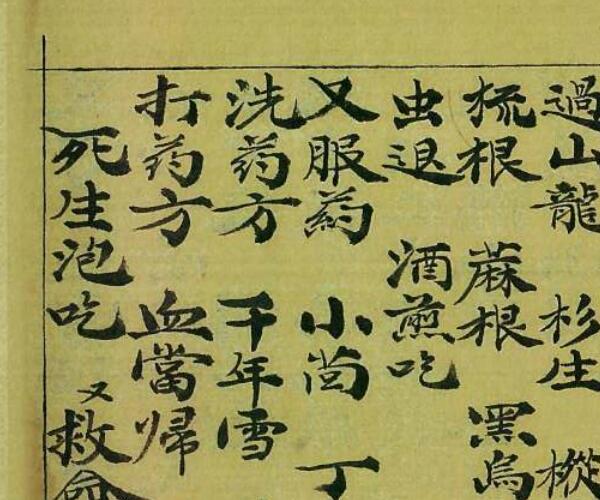 過山龍 杉生 樅
梳根 蔴根 黑烏
虫退 酒煎吃
又服药 小茴 丁
洗药方 千年雪
打药方 血當歸
死生泡吃 又救命